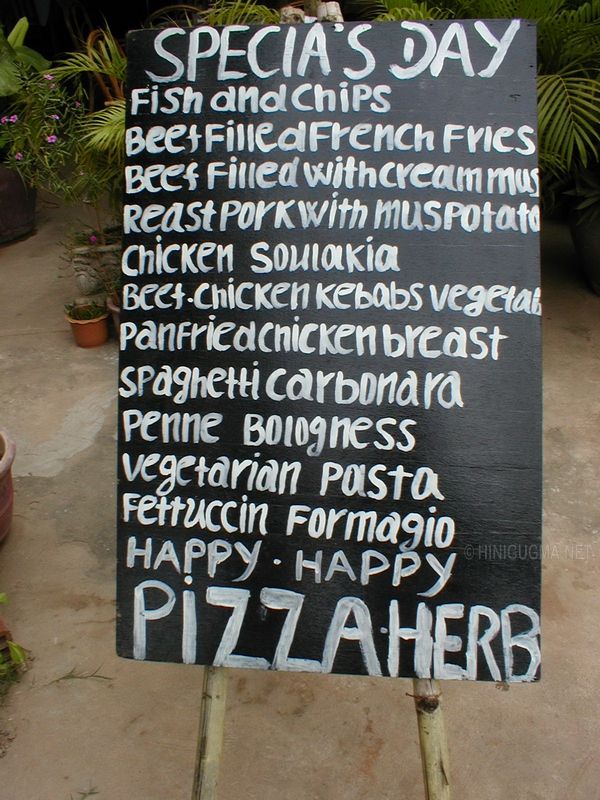 SPECIA'S DAY
Fish and chips
Beef Filled French Fries
Beef Filled with cream mus
Reast Pork with muspotato
Chicken Soulakia
Beef.chicken kebabs vegetab
Panfried chicken breast
Spaghetti carbonara
Penne Bologness
Vegetarian Pasta
Fettuccin Formagio
HAPPY . HAPPY
PiZZA.HERB
© HINIGUGMA.NET